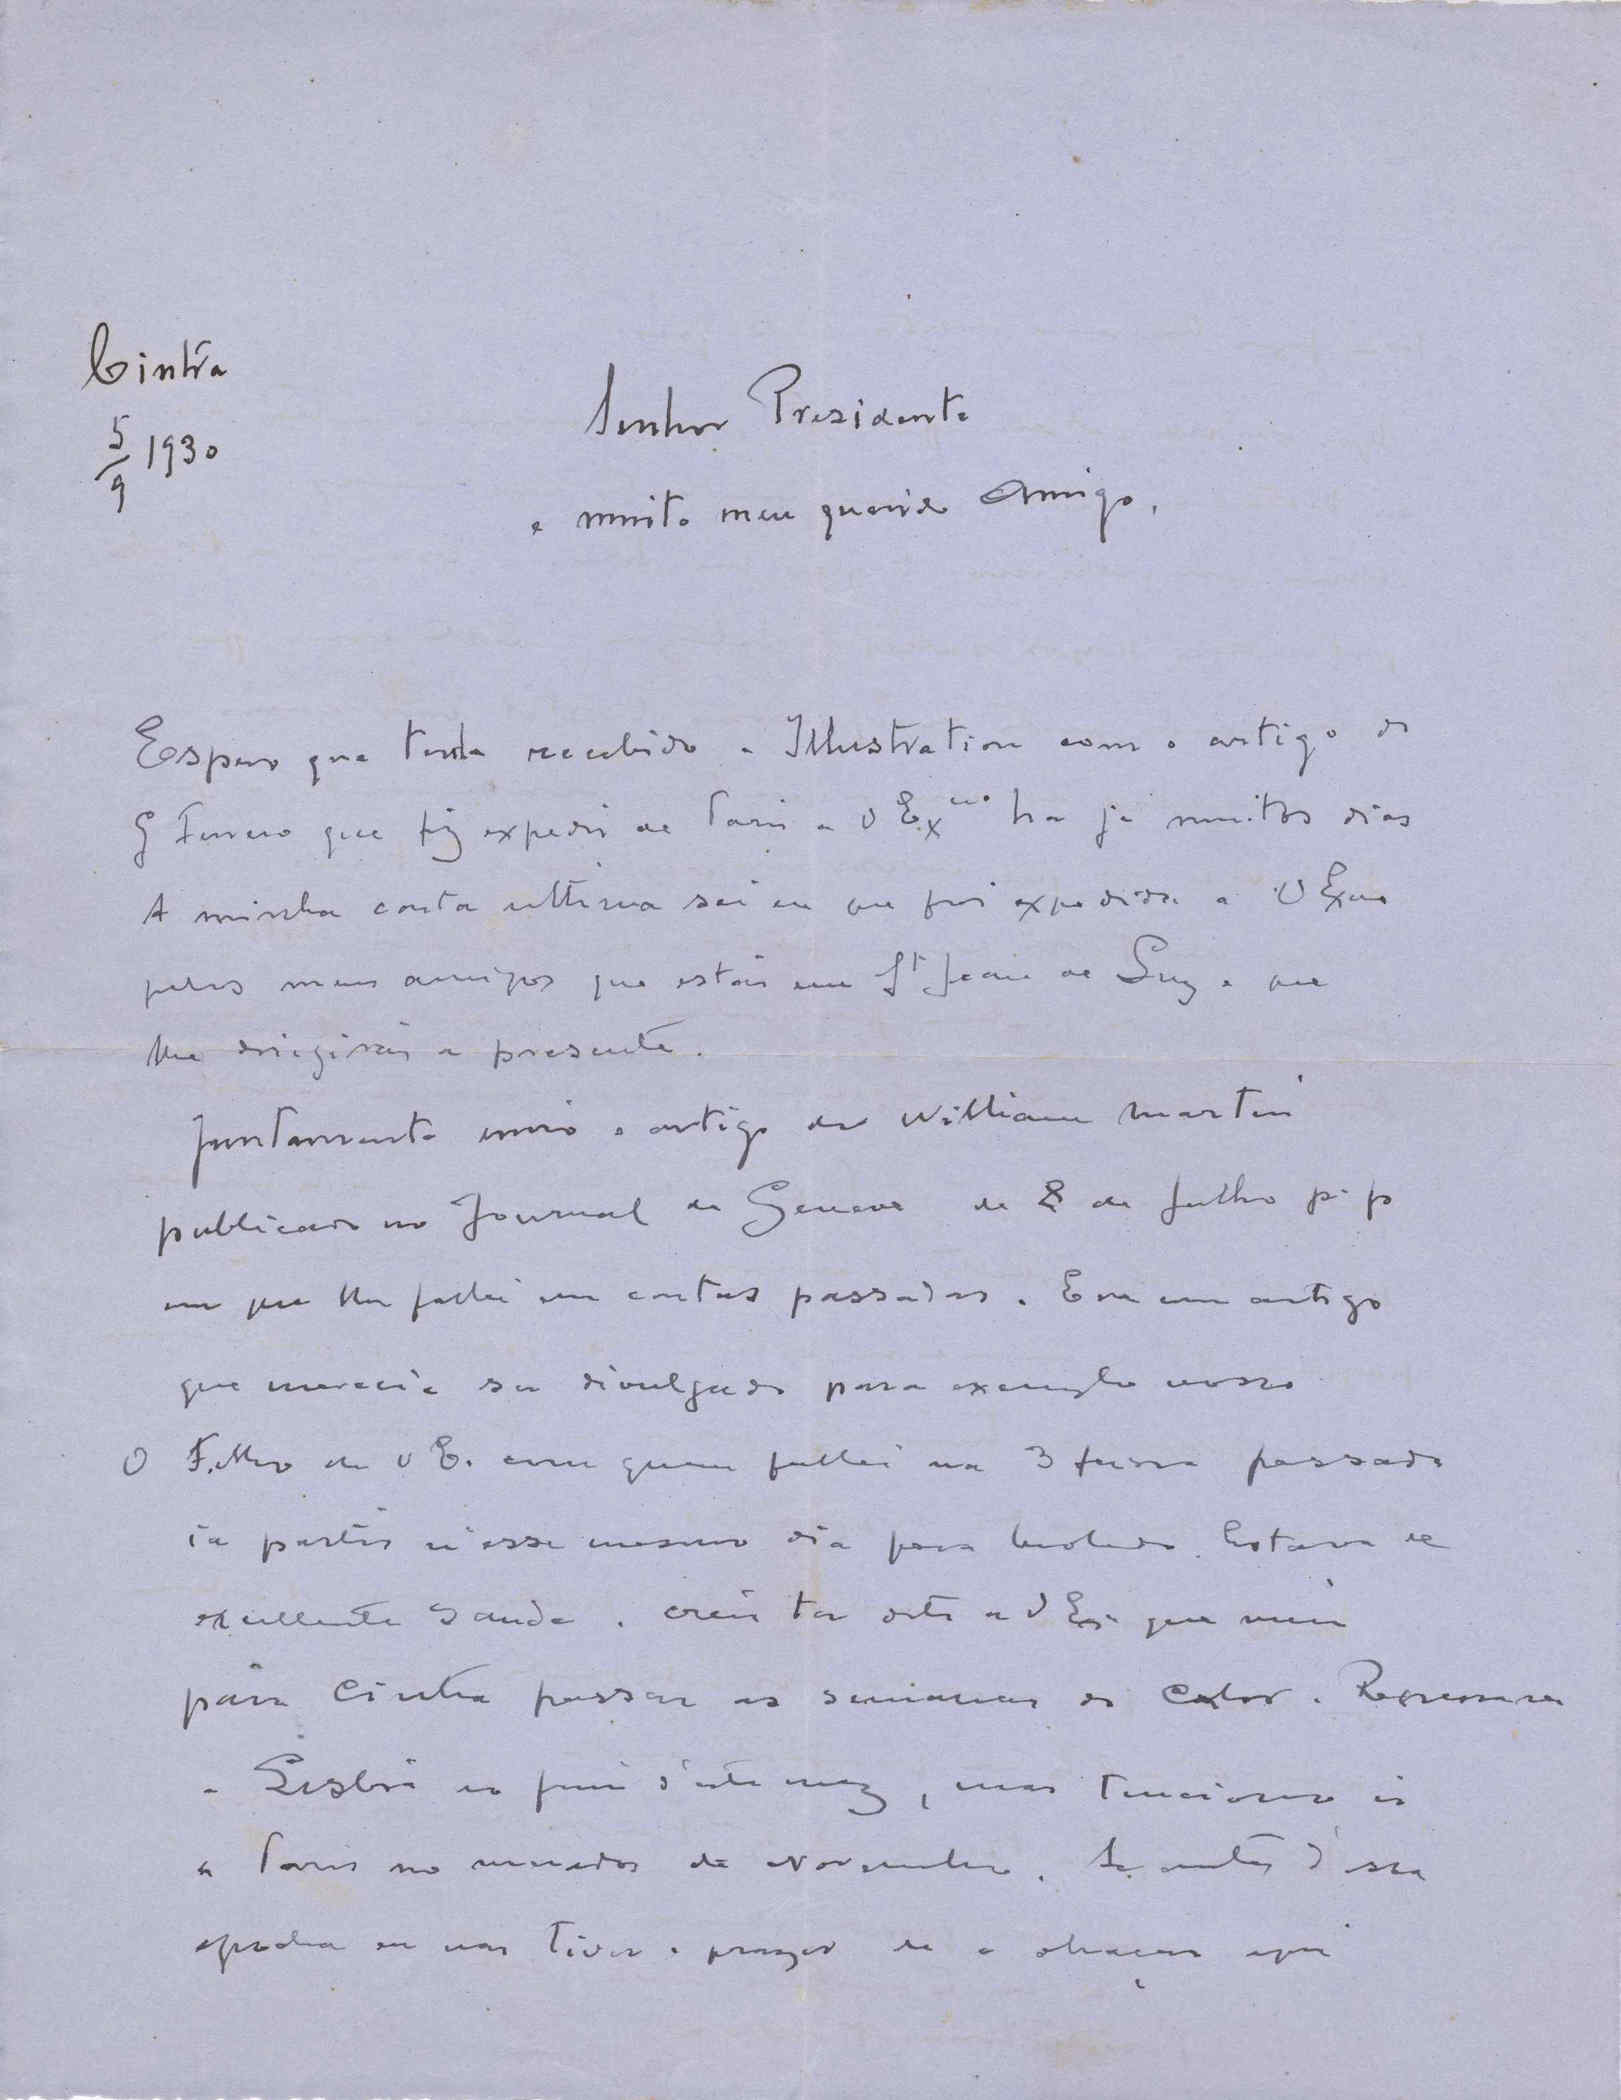 Cintra
5/9 1930
Senhor Presidente
e muito meu querido Amigo,
Espero que tenha recebido a Illustration com o artigo de
G Ferrero que fiz expedir de Paris a V Ex.cia ha já muitos dias
A minha carta ultima sei eu que foi expedida a V Exa
pelos meus amigos que estão em St Jean de Luz e que
lhe dirigirão a presente.
Juntamente envio o artigo de William Martin
publicado no Journal de Geneve de 8 de Julho p. p
em que lhe fallei em cartas passadas. Era um artigo
que merecia ser divulgado para exemplo nosso
O Filho de V E. com quem fallei na 3 feira passada
ia partir n'esse mesmo dia para Estava de
excellente saude. creio ter dito a V Ex que vim
para Cintra passar as semanas de calor. Regressarei
a Lisboa no fim d'este mez, mas tenciono ir
a Paris no meados de Novembro. Se antes d'essa
epocha eu não tiver o prazer de o abraçar aqui